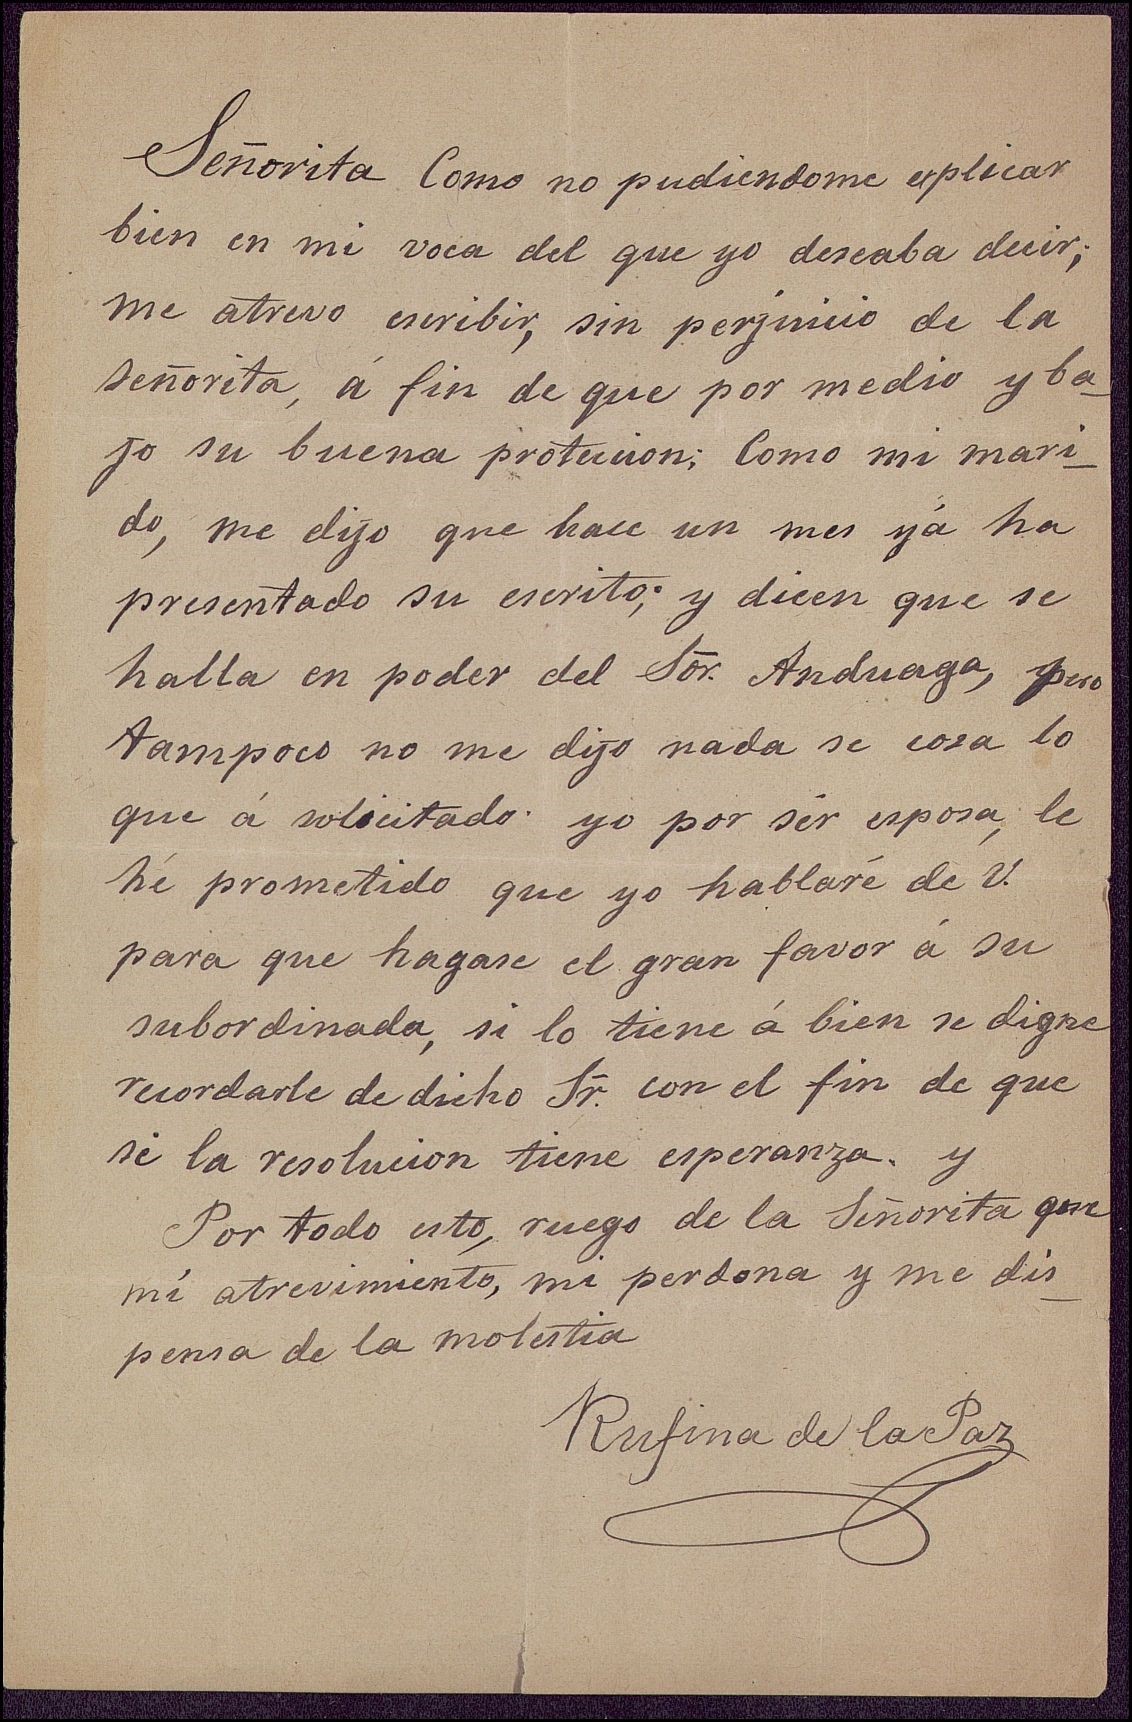 Señorita Como no pudiendome esplicar
bien en mi voca del que yo deseaba decir;
me atrevo escribir, sin perjuicio de la
señorita, á fin de que por medio y ba_
jo su buena protecion; Como mi mari_
do, me dijo que hace un mes yá ha
presentado su escrito; y dicen que se
halla en poder del Sōr. Anduaga, pero
tampoco no me dijo nada se cosa lo
que á solicitado. yo por sér esposa, le
hé prometido que yo hablaré de V.
para que hagase el gran favor á su
subordinada, si lo tiene á bien se digne
recordarle de dicho Sr. con el fin de que
si la resolucion tiene esperanza. y
Por todo esto, ruego de la Señorita que
mí atrevimiento, mi perdona y me dis_
pensa de la molestia
Rufina de la Paz